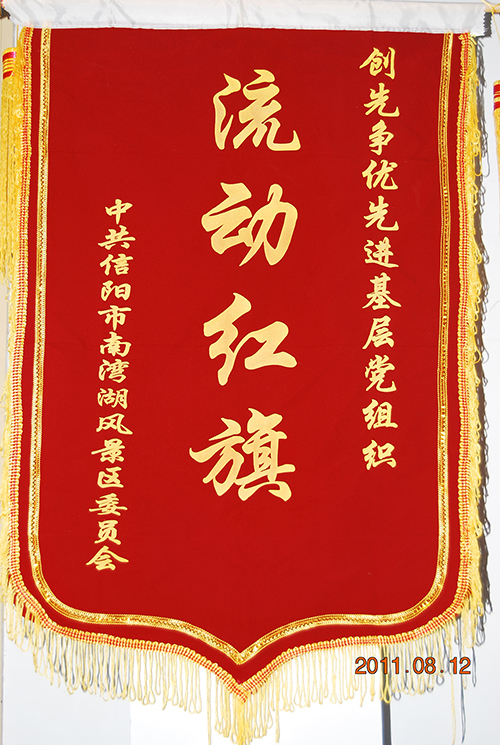 创先争优先进基层党组织
流动红旗
中共信阳市南湾湖风景区委员会
2011.08.12